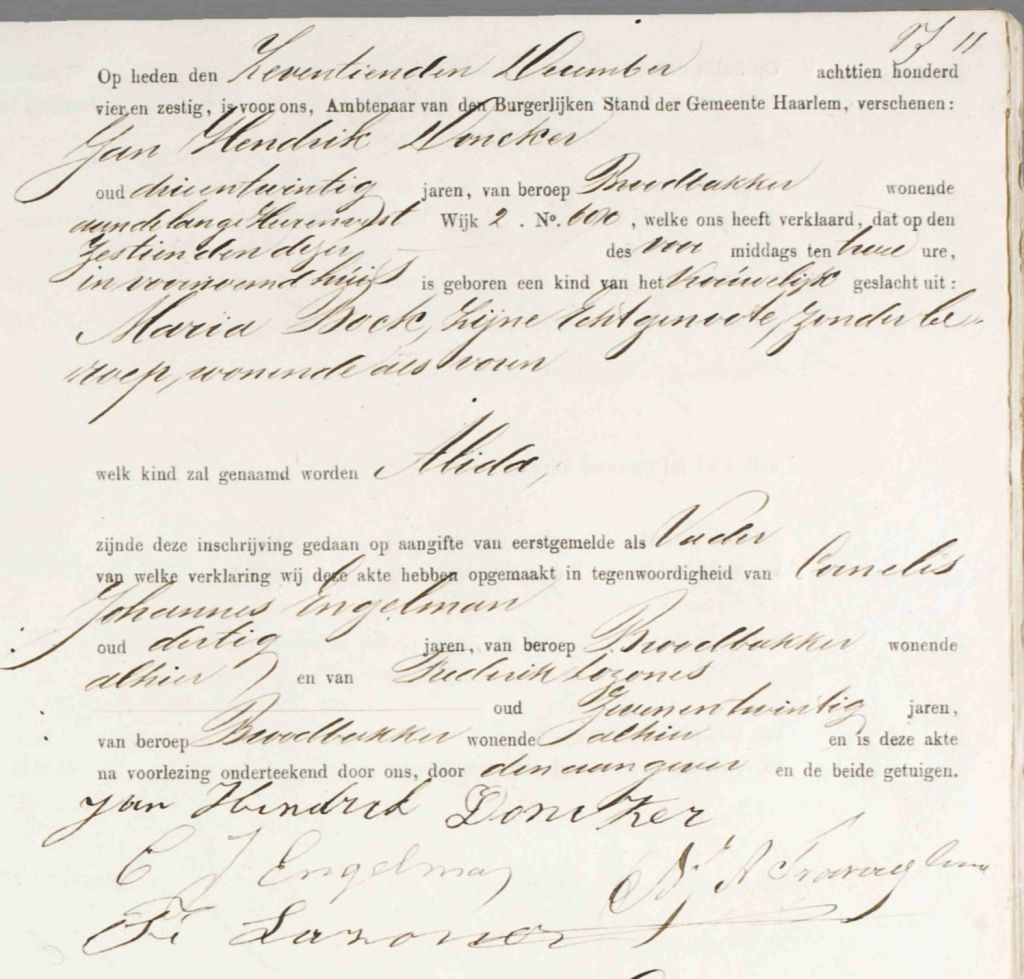 Op heden den Zeventienden December achttien honderd
vier en zestig, is voor ons, Ambtenaar van den Burgerlijken Stand der Gemeente Haarlem, verschenen:
Jan Hendrik Doncker
oud drieentwintig jaren, van beroep Broodbakker wonende
aan de lange Heerenvest Wijk 2. No. 600, welke ons heeft verklaard, dat op den
Zestienden dezer des voor middags ten twee ure,
in voornoemd huis is geboren een kind van het Vrouwelijk geslacht uit:
Maria Bock, Zijne Echtgenoote, zonder be-
roep, wonende als voren
welk kind zal genaamd worden Alida,
zijnde deze inschrijving gedaan op aangifte van eerstgemelde als Vader
van welke verklaring wij deze akte hebben opgemaakt in tegenwoordigheid van Cornelis
Johannes Engelman
oud dertig jaren, van beroep Broodbakker wonende
alhier en van Frederik Lozones
oud Zevenentwintig jaren,
van beroep Broodbakker wonende alhier en is deze akte
na voorlezing onderteekend door ons, door den aangever en de beide getuigen.
Jan Hendrik Doncker
C J Engelman